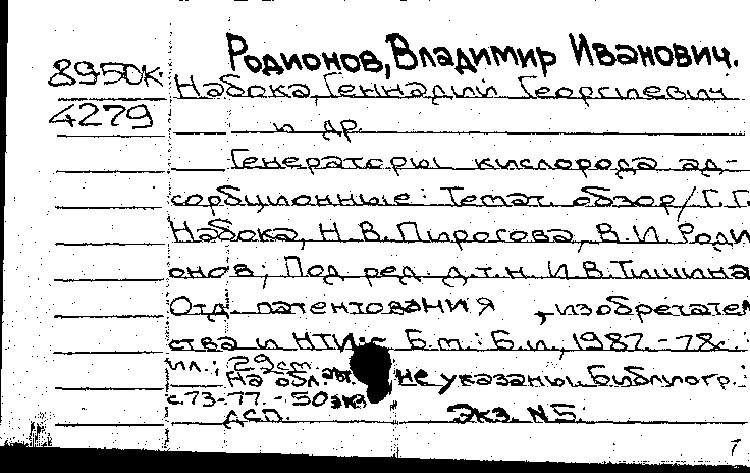 Родионов, Владимир Иванович.
8950к
Набока, Геннадий Георгиевич
4279
и др.
Генераторы кислорода ад-
сорбционные: Темат. обзор/Г.Г.
Набока, Н.В.Пирогова, В.И. Роди
онов; Под ред. д.т.н. И.В.Тишина
Отд. патентования, изобретател
ства и НТИ.- Б.м.: Б.и., 1987.- 78с.:
ил.; 29см.
На обл. авт. не указаны. Библиогр.:
с.73-77. - 50экз
ДСП. Экз. N5.